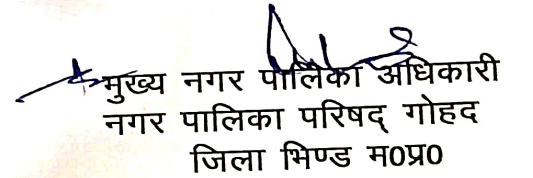 मुख्य नगर पालिका अधिकारी
नगर पालिका परिषद् गोहद
जिला भिण्ड म0प्र0